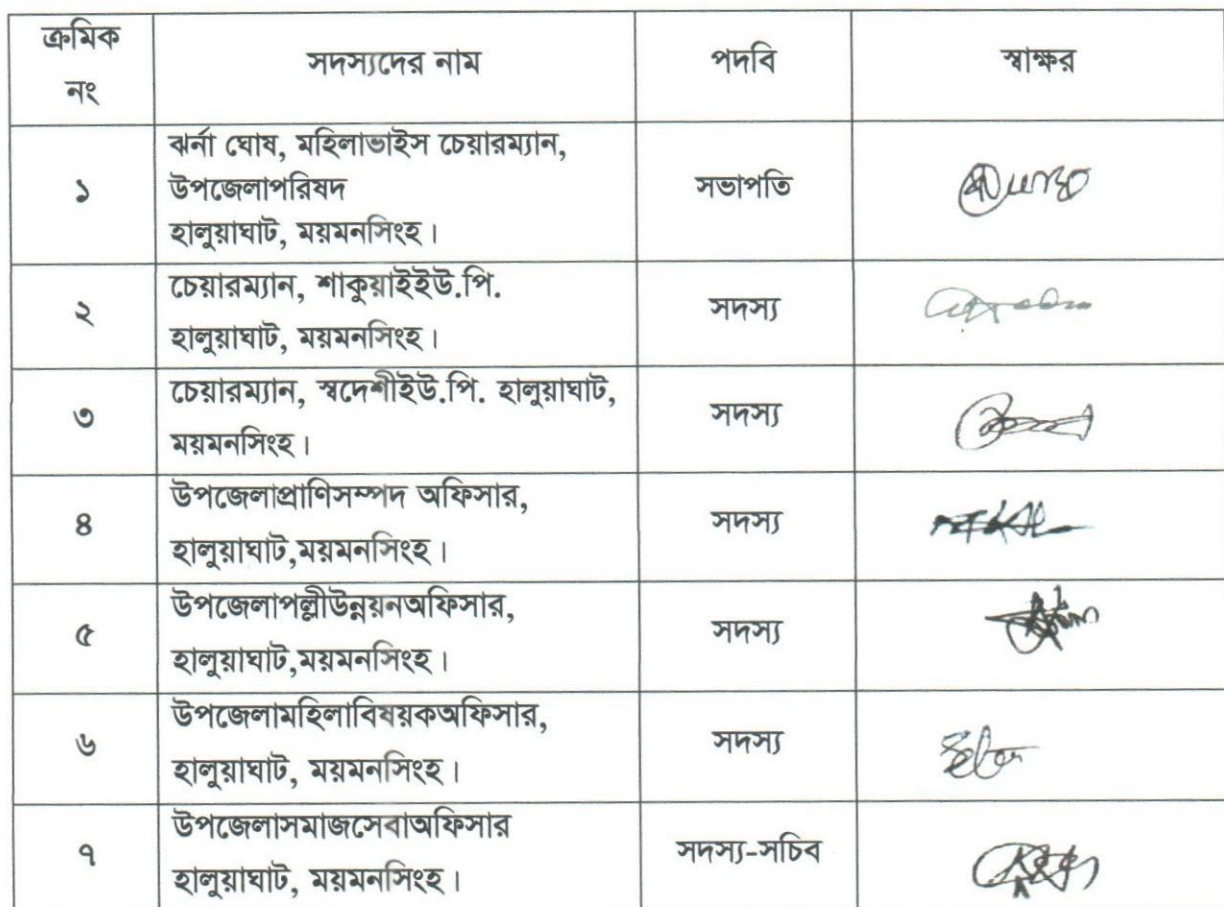 ক্রমিক নং সদস্যদের নাম পদবি স্বাক্ষর
১ ঝর্না ঘোষ, মহিলাভাইস চেয়ারম্যান, উপজেলাপরিষদ হালুয়াঘাট, ময়মনসিংহ। সভাপতি
২ চেয়ারম্যান, শাকুয়াইইউ.পি. হালুয়াঘাট, ময়মনসিংহ। সদস্য
৩ চেয়ারম্যান, স্বদেশীইউ.পি. হালুয়াঘাট, ময়মনসিংহ। সদস্য
৪ উপজেলাপ্রাণিসম্পদ অফিসার, হালুয়াঘাট,ময়মনসিংহ। সদস্য
৫ উপজেলাপল্লীউন্নয়নঅফিসার, হালুয়াঘাট,ময়মনসিংহ। সদস্য
৬ উপজেলামহিলাবিষয়কঅফিসার, হালুয়াঘাট, ময়মনসিংহ। সদস্য
৭ উপজেলাসমাজসেবাঅফিসার হালুয়াঘাট, ময়মনসিংহ। সদস্য-সচিব